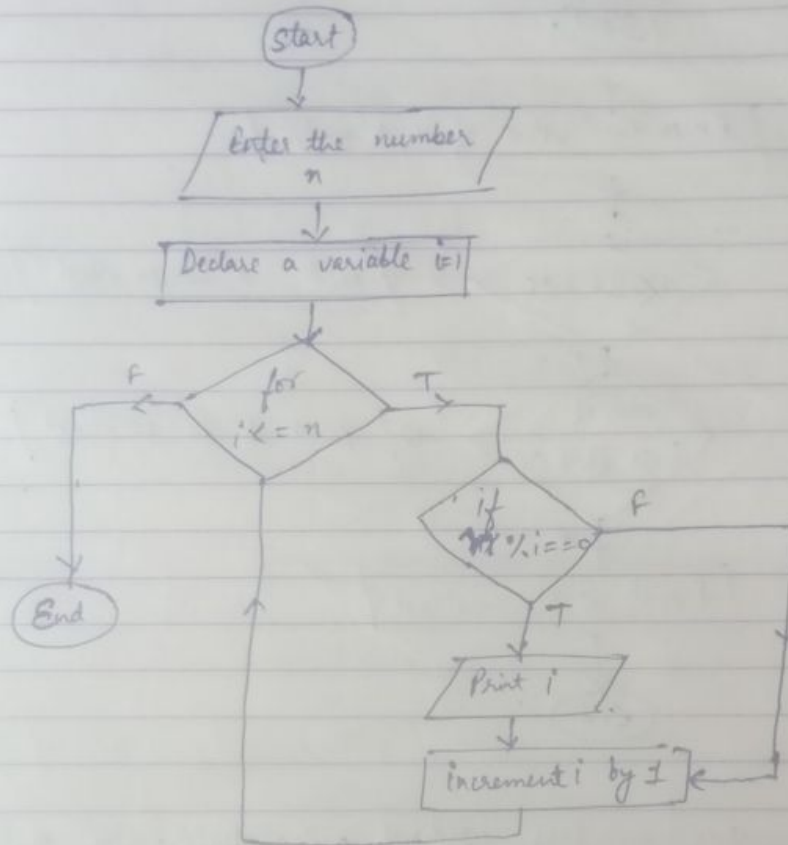 Start
Enter the number
n
Declare a variable i=1
F
for
i<=n
T
if
%i==0
F
T
End
Print i
increment i by 1